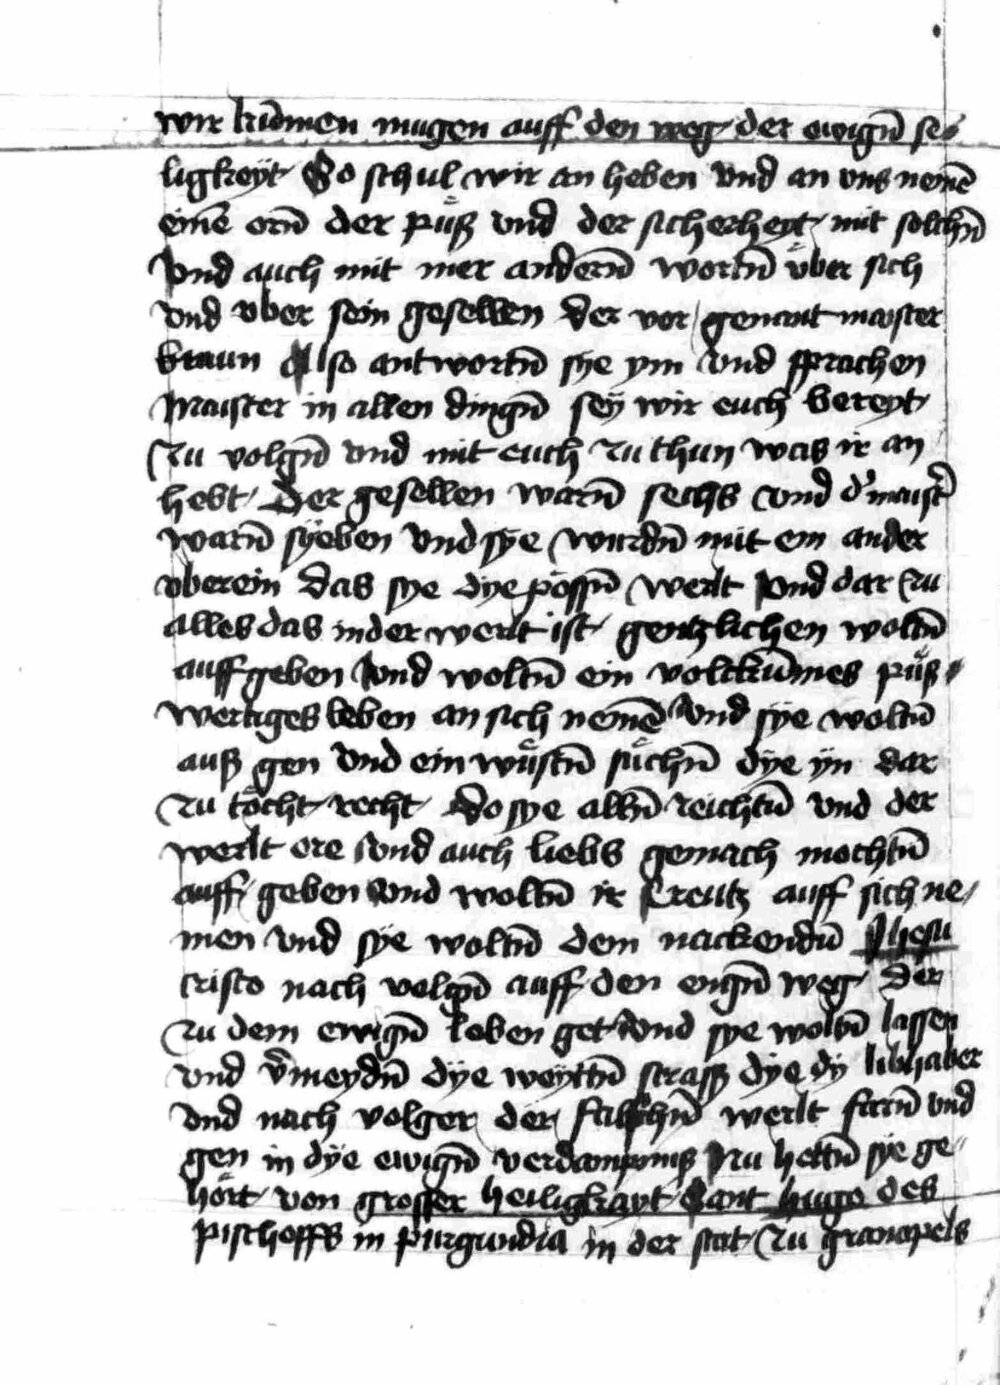 wir kūmen mugen auff den weg der ewign̄ se-
ligkeyt So schul wir an heben vnd an vns nemē
einē orn̄ der půß vnd der sicherheyt mit solchn̄
vnd auch mit mer andern̄ wortn̄ v̊ber sich
vnd vber sein gesellen der vor genant mayster
braun Also antwortn̄ sye ym vnd sprachen
Mayster in allen dingn̄ seÿ wir euch bereyt
zu volgn̄ vnd mit euch zu thun was ir an
hebt Der gesellen warn̄ sechs vnd d' maist'
warn̄ syeben vnd sye wurdn̄ mit ein ander
vberein das sye dye pössn̄ werlt vnd dar zu
alles das in der werlt ist gentzlichen woltn̄
auff geben vnd woltn̄ ein volckūmes půß-
wertiges leben an sich nemē vnd sÿe woltn̄
auß gen vnd ein wůstn̄ sůchn̄ dÿe ÿn dar
zu töcht recht do sye alln̄ reichtū vnd der
werlt ere vnd auch liebs gemach mochtn̄
auff geben vnd woltn̄ ir creutz auff sich ne-
men vnd sÿe woltn̄ dem nackendn̄ Jhesu
cristo nach volgn̄ auff den engn̄ weg der
zu dem ewign̄ leben get vnd sye woltn̄ lassen
vnd v̄meydn̄ dÿe weyttn̄ strass dÿe dy libhaber
vnd nach volger der falschn̄ werlt farn̄ vnd
gen in dÿe ewign̄ verdampnuß Nu hettn̄ sÿe ge-
hört von grosser heiligkayt Sant hugo des
pischoffs in purgundia in der stat zu granopels